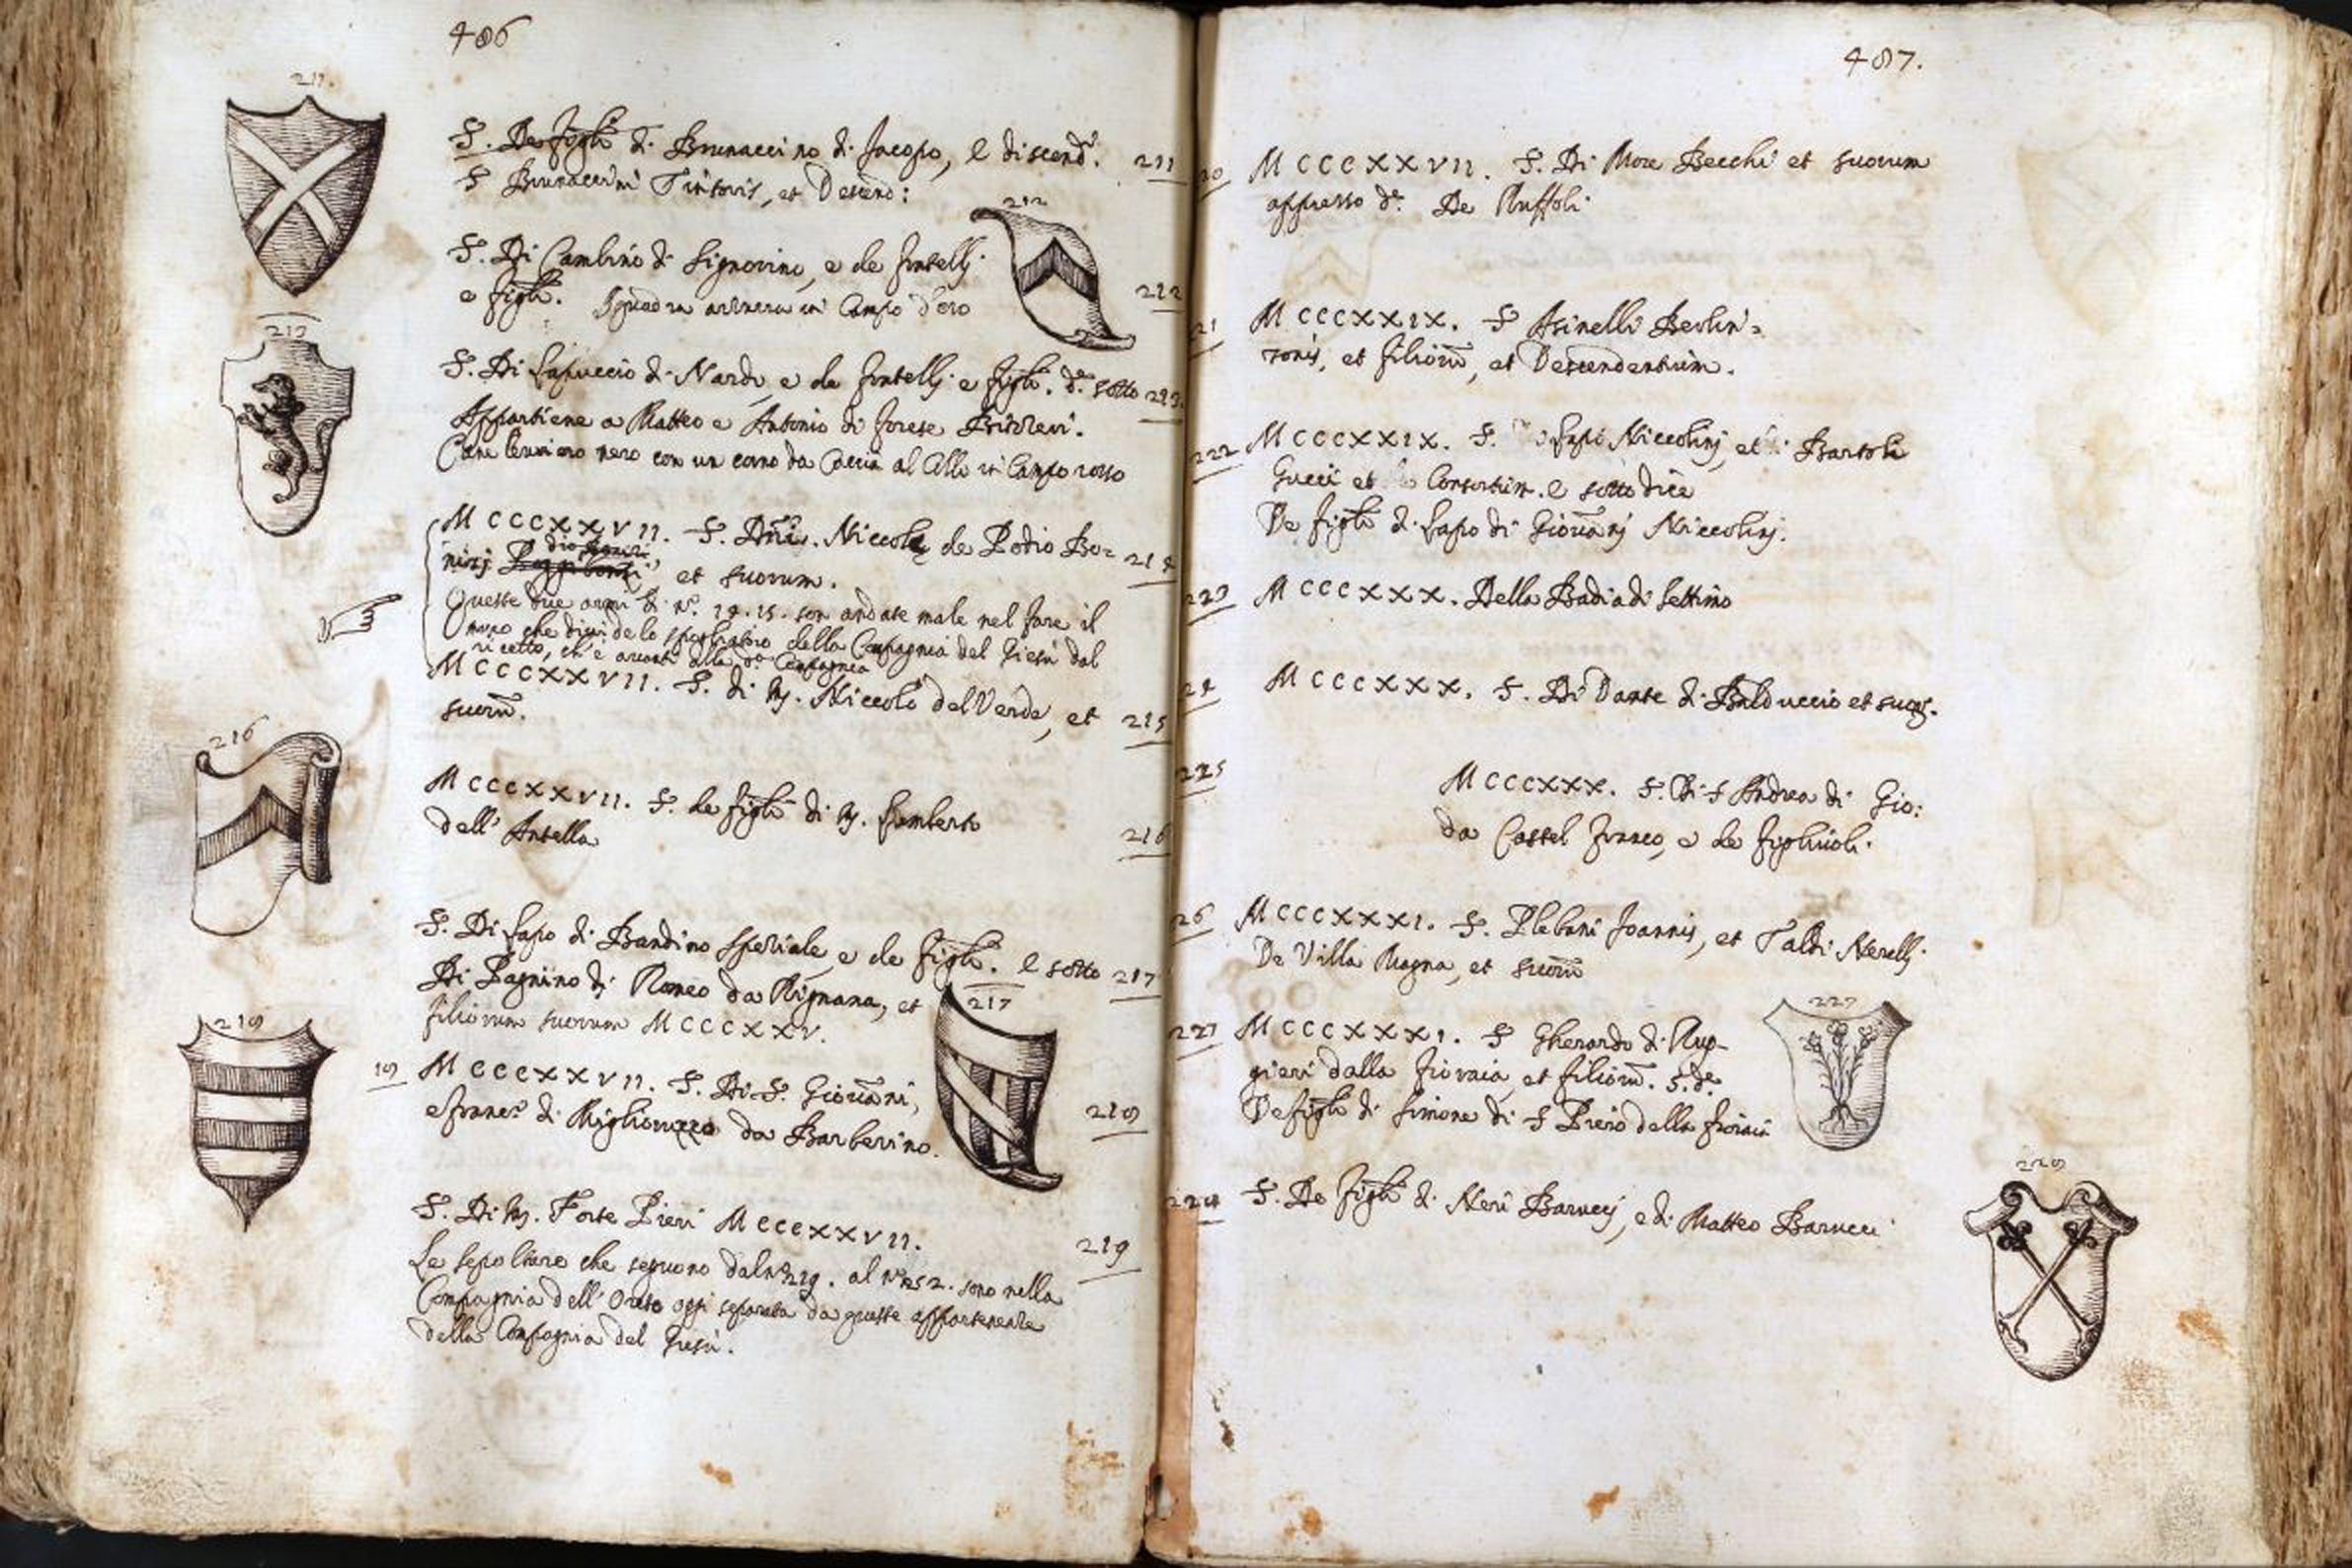 406
211
S. De figli di Brunaccino di Jacopo, e discend.
211
S Brunaccini Tintoris, et Descend:
212
S. Di Cambino di Signorino, e de fratelli
212
e figli. Squadra azzurra in Campo d'oro
213
S. Di Lapuccio di Nardo, e de fratelli e figli. de. sotto
213
Appartiene a Matteo e Antonio di Forese
Cane levriero nero con un corno da Caccia al Collo in Campo rosso
MCCCXXVII. S. Dni. Niccole de Podio Bo=
214
nizj et suorum.
Queste due armi di No. 14.15. son andate male nel fare il
muro che divide lo spogliatoio della Compagnia del Giesù dal
ricetto, ch'è avanti alla da. Compagnia
MCCCXXVII. S. di M. Niccolò del Verde, et
215
suorum.
216
MCCCXXVII. S. de figli di M. Lamberto
dell' Antella
216
S. Di Lapo di Bandino Speziale, e de figli. e sotto
217
Di Pagnino di Romeo da Rignana, et
217
filiorum suorum MCCCXXV.
218
MCCCXXVII. S. Di S. Giovanni,
e franco. di Migliorozzo da Barberino.
218
S. Di M. Forte Pieri MCCCXXVII.
219
Le sepolture che seguono dal no. 219. al no. 252. sono nella
Compagnia dell' Orto oggi separata da queste appartenente
della Compagnia del Giesù.
487.
20
MCCCXXVII. S. Di More Becchi et suorum
appresso de. De Ruffoli
21
MCCCXXIX. S Asinelli Berlin=
zonis, et filiorum, et Descendentium.
222
MCCCXXIX. S. Lapi Niccolinj, et Bartoli
Gucci et Consortium. e sotto dice
De figli di Lapo di Giovannj Niccolinj.
223
MCCCXXX. Della Badia di Settimo
24
MCCCXXX. S. Di Dante di Balduccio et suor.
225
MCCCXXX. S. Di S Andrea di Gio:
da Castel franco, e de figliuoli.
26
MCCCXXXI. S. Plebani Joannis, et Taldi Nerelli
De Villa Magna, et suorum
227
227
MCCCXXXI. S Gherardo di Rug-
gieri dalla fioraia, et filiorum. S. de.
De figli di Simone di S Piero della fioraia
228
228
S. De figli di Neri Baruccj, e di Matteo Barucci